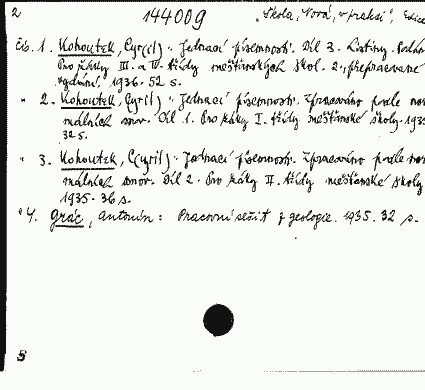 2 144009 „Škola, Nová, v praksi",
čís. 1. Kohoutek, Cyr(il): Jednací písemnosti. Díl 3. Listiny.
Pro žáky III. a IV. třídy měšťanských škol. 2., přepracované
vydání. 1936. 52 s.
" 2. Kohoutek, Cyril): Jednací písemnosti. Zpracováno podle
málních osnov. Díl 1. Pro žáky I. třídy měšťanské školy. 1935
32 s.
" 3. Kohoutek, C(yril): Jednací písemnosti. Zpracováno podle
málních osnov. Díl 2. Pro žáky II. třídy měšťanské školy
1935. 36 s.
" 4. Grác, Antonín: Pracovní sešit z geologie. 1935. 32 s.
S